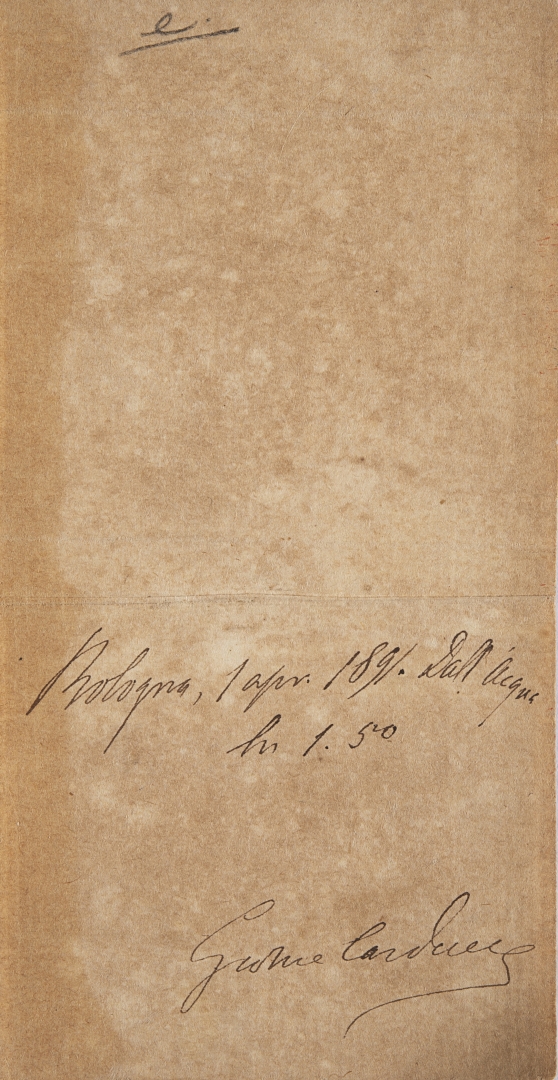 e.
Bologna, 1 apr. 1891. Dall'Acqua
1. 50
Giosue Carducci